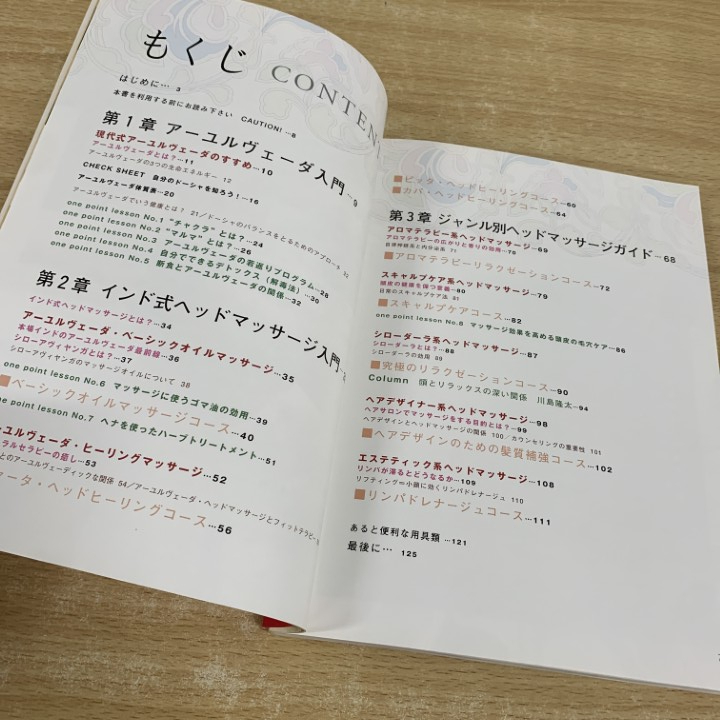 もくじ CONTEN
はじめに… 3
本書を利用する前にお読み下さい CAUTION! …8
第1章 アーユルヴェーダ入門…9
現代式アーユルヴェーダのすすめ…10
アーユルヴェーダとは?…11
アーユルヴェーダの3つの生命エネルギー 12
CHECK SHEET 自分のドーシャを知ろう!…16
アーユルヴェーダ体質表…20
アーユルヴェーダでいう健康とは? 21/ドーシャのバランスをとるためのアプローチ 22
one point lesson No.1 “チャクラ”とは?…24
one point lesson No.2 “マルマ”とは?…26
one point lesson No.3 アーユルヴェーダの若返りプログラム…26
one point lesson No.4 自分でできるデトックス(解毒法)…30
one point lesson No.5 断食とアーユルヴェーダの関係…32
第2章 インド式ヘッドマッサージ入門
インド式ヘッドマッサージとは?…34
アーユルヴェーダ・ベーシックオイルマッサージ…35
本場インドのアーユルヴェーダ最前線…36
シローアヴィヤンガとは?…37
シローアヴィヤンガのマッサージオイルについて 38
one point lesson No.6 マッサージに使うゴマ油の効用…39
■ベーシックオイルマッサージコース…40
one point lesson No.7 ヘナを使ったハーブトリートメント…51
ユルヴェーダ・ヒーリングマッサージ…52
ラルセラピーの癒し…53
とのアーユルヴェーディックな関係 54/アーユルヴェーダ・ヘッドマッサージとフィットテラピー
ータ・ヘッドヒーリングコース…56
■ピッタ・ヘッドヒーリングコース…60
■カパ・ヘッドヒーリングコース…64
第3章 ジャンル別ヘッドマッサージガイド…68
アロマテラピー系ヘッドマッサージ…69
アロマテラピーの広がりと香りの効用…70
自律神経系と内分泌系 71
■アロマテラピーリラクゼーションコース…72
スキャルプケア系ヘッドマッサージ…79
頭皮の健康を保つ意義…80
日常のスキャルプケア法 81
■スキャルプケアコース…82
one point lesson No.8 マッサージ効果を高める頭皮の毛穴ケア…86
シローダーラ系ヘッドマッサージ…87
シローダーラとは?…88
シローダーラの効用 89
■究極のリラクゼーションコース…90
Column 頭とリラックスの深い関係 川島隆太…94
ヘアデザイナー系ヘッドマッサージ…98
ヘアサロンでマッサージをする目的とは?…99
ヘアデザインとヘッドマッサージの関係 100/カウンセリングの重要性 101
■ヘアデザインのための髪質補強コース…102
エステティック系ヘッドマッサージ…108
リンパが滞るとどうなるか…109
リフティング=小顔に効くリンパドレナージュ 110
■リンパドレナージュコース…111
あると便利な用具類 …121
最後に… 125